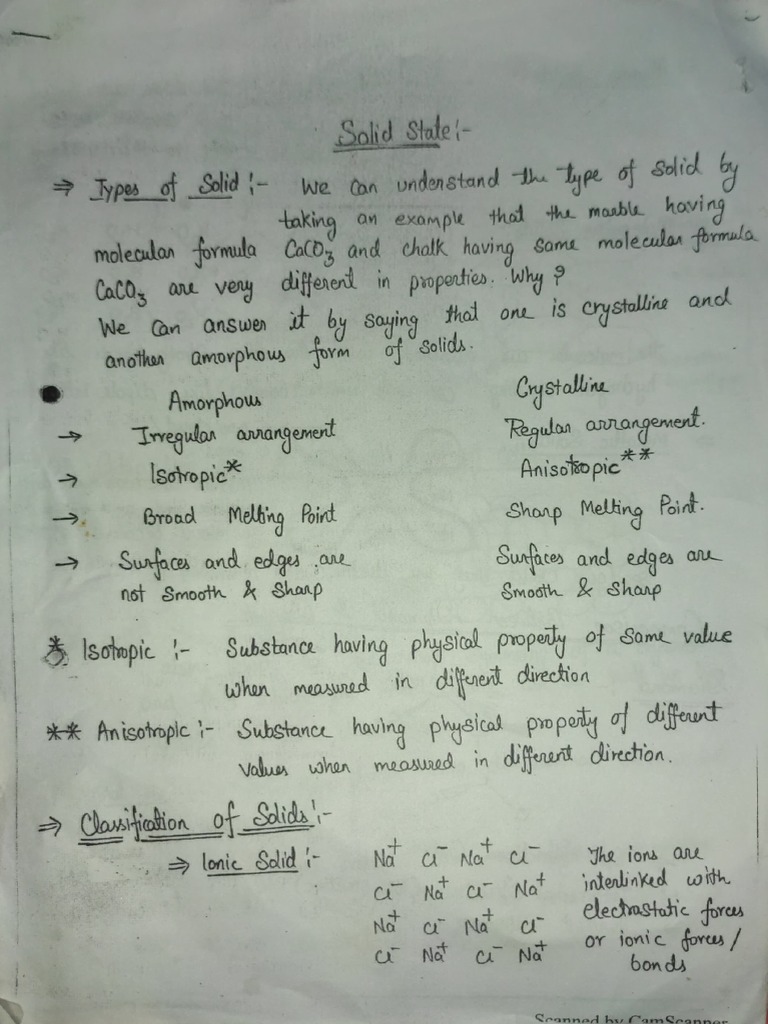 Solid State:-
⇒ Types of Solid :- We can understand the type of solid by
taking an example that the marble having
molecular formula CaCO₃ and chalk having same molecular formula
CaCO₃ are very different in properties. Why ?
We can answer it by saying that one is crystalline and
another amorphous form of solids.
Amorphous Crystalline
→ Irregular arrangement Regular arrangement.
→ Isotropic* Anisotropic**
→ Broad Melting Point Sharp Melting Point.
→ Surfaces and edges are Surfaces and edges are
not Smooth & Sharp Smooth & Sharp
* Isotropic :- Substance having physical property of same value
when measured in different direction
** Anisotropic :- Substance having physical property of different
values when measured in different direction.
⇒ Classification of Solids :-
⇒ Ionic Solid :- Na⁺ Cl⁻ Na⁺ Cl⁻ The ions are
Cl⁻ Na⁺ Cl⁻ Na⁺ interlinked with
Na⁺ Cl⁻ Na⁺ Cl⁻ electrastatic forces
Cl⁻ Na⁺ Cl⁻ Na⁺ or ionic forces /
bonds
Scanned by CamScanner